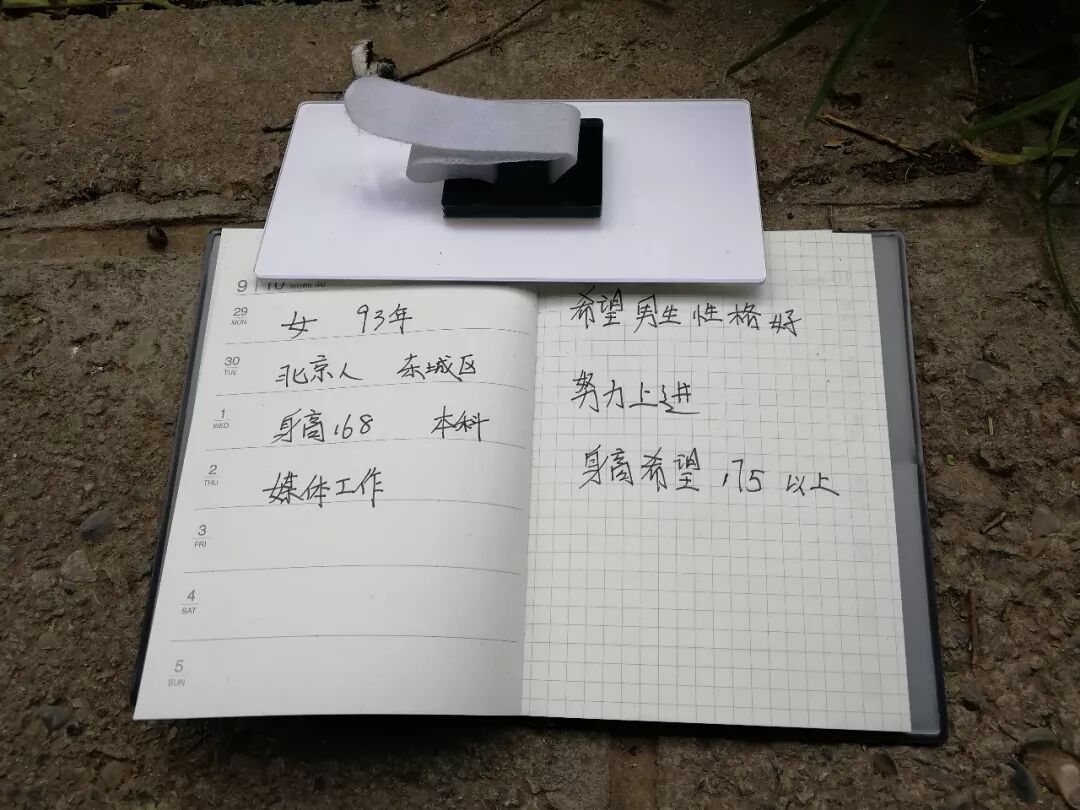 9 10 week 40
29 MON 女 93年
30 TUE 北京人 东城区
1 WED 身高168 本科
2 THU 媒体工作
3 FRI
4 SAT
5 SUN
希望男生性格好
努力上进
身高希望175以上